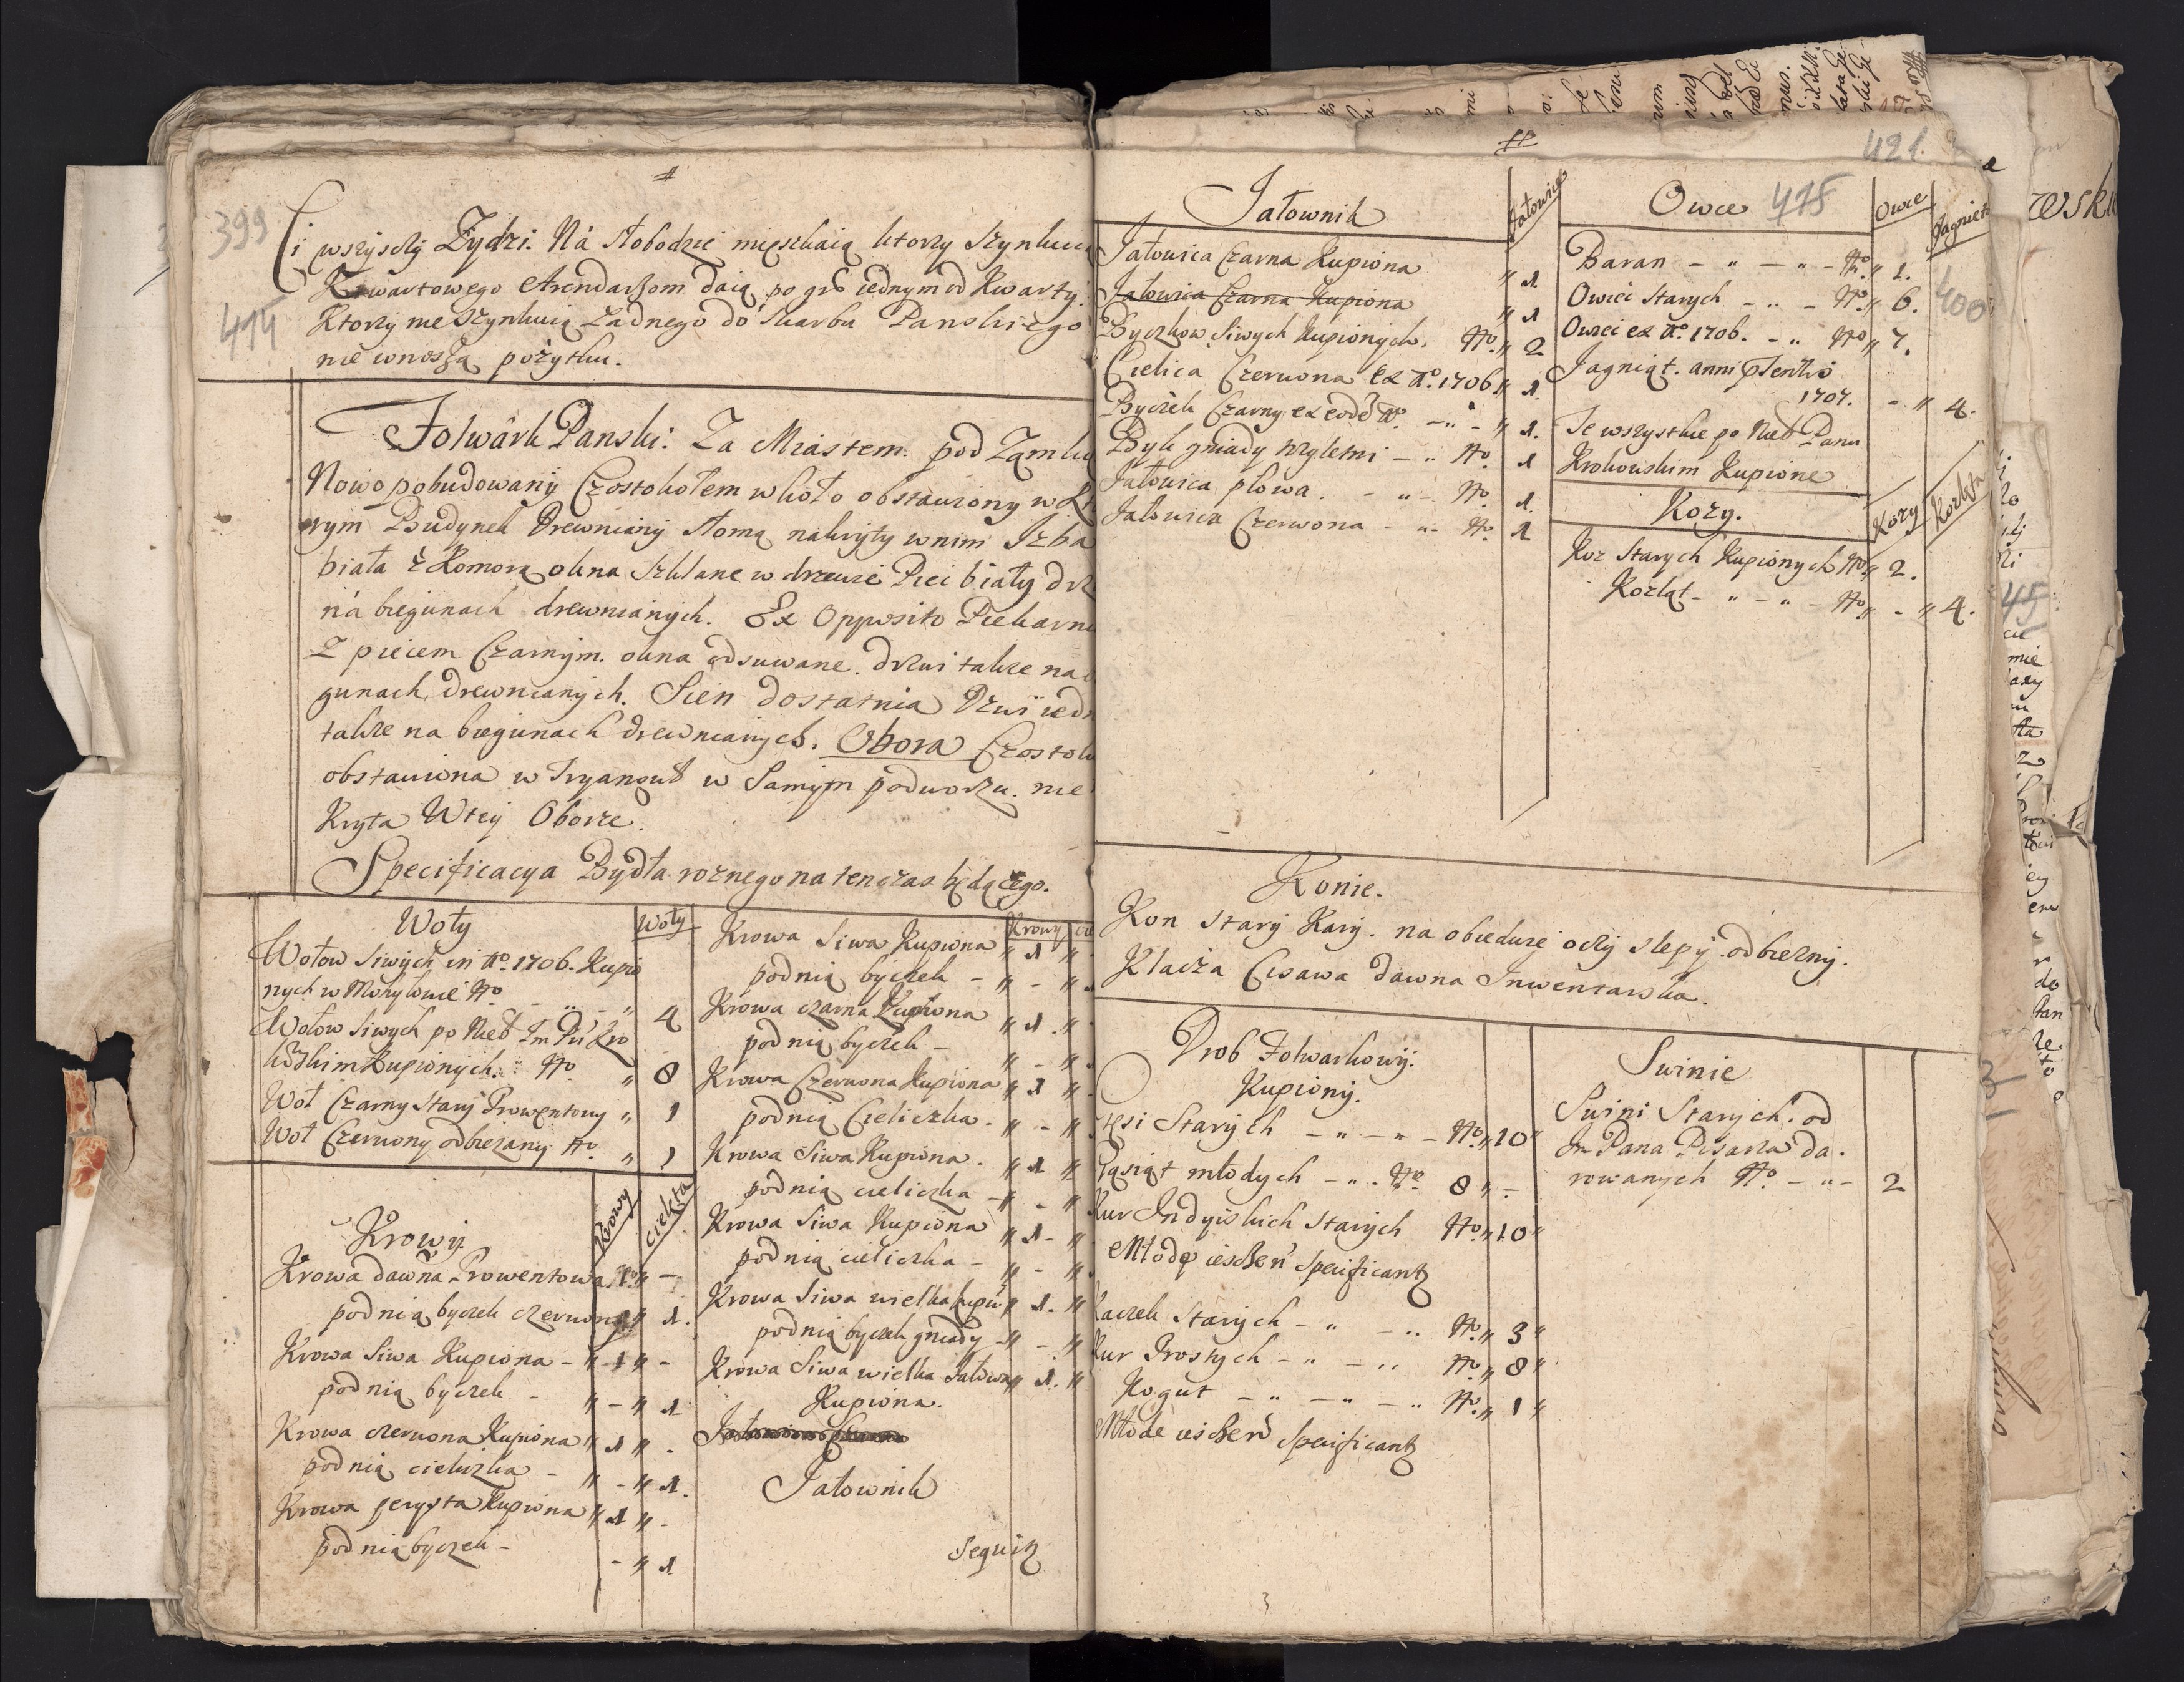 399
414
Ci wszyscy Żydzi. Na Słobodzie mięszkaią ktorzy szynkuią
Kwartowego Arendarzom daią po gro iednym od Kwarty.
Ktorzy nie szynkuią żadnego do Skarbu Panskiego
nie wnoszą pożytku.
Folwark Panski. Za Miastem pod Zamki
Nowo pobudowany Czostokołem wkoło obstawiony w Kt
rym Budynek Drewniany słomą nakryty w nim Izba
biała z Komorą okna szklane w drzewie Piec biały drz
na biegunach drewnianych. Ex Opposito Piekarni
Z piecem Czarnym. okna odsuwane. drzwi takze na b
gunach drewnianych. Sien dostatnia Drzwi iedn
takze na biegunach drewnianych. Obora Czostok
obstawiona w Tryanguł w Samym podworzu. nie
Kryta W tey Oborze.
Specificacya Bydła roznego na tenczas będącego.
Woły
Woły
Wołow Siwych in Ao. 1706. Kupio
nych w Mohylowie No - " - " 4
Wołow Siwych po Nieb Im Pu Kro
kowskim Kupionych. No " 8
Woł Czarny Stary Prowentowy " 1
Woł Czerwony odbieżany No. " 1
Krowy
Krowy
Cielęta
Krowa dawna Prowentowa 1. " -
pod nią byczek czerwony " 1.
Krowa Siwa Kupiona - " 1 " -
pod nią byczek - " - " 1
Krowa czerwona Kupiona " 1 " -
pod nią cieliczka - " - " 1.
Krowa perysta Kupiona " 1 " -
pod nią byczek - - " 1
Krowy
Krowa Siwa Kupiona " 1 "
pod nią byczek - " - "
Krowa czarna Kupiona " 1. "
pod nią byczek - " - "
Krowa Czerwona Kupiona " 1 "
pod nią Cieliczka - " - "
Krowa Siwa Kupiona. " 1 "
pod nią cieliczka - " - "
Krowa Siwa Kupiona " 1 - "
pod nią cieliczka - " - "
Krowa Siwa wielka kupio " 1. "
pod nią byczek gniady - " - "
Krowa Siwa wielka Jałowa " 1. "
Kupiona.
Jałownik
Sequitr
421.
Jałownik
Jałowice
Jałowica Czarna Kupiona " 1
Jałowica Czarna Kupiona " 1
Byczkow Siwych Kupionych. No. " 2
Cielica Czerwona ex Ao. 1706 " 1.
Byczek Czarny ex eod Ao. - " - " 1.
Byk gniady trzyletni - " No. 1
Jałowica płowa. - " - No 1.
Jałowica Czerwona - " - No 1
Owce 415
Owce
Jagnięta
400
Baran - " - " - No. " 1.
Owiec starych - " - No. " 6.
Owiec ex Ao. 1706. - " No " 7.
Jagniąt. anni
1707. - " 4.
Te wszystkie po Nieb Panu
Krokowskim Kupione
Kozy.
Kozy
Kozlęta
Koz Starych Kupionych No. " 2.
Kozląt - " - " - No. " - " 4.
Konie.
Kon stary Kary. na obiedwie oczy slepy. odbiezny.
Klacza Cisawa dawna Inwentarska.
Drob Folwarkowy.
Kupiony.
Gęsi Starych - " - " - No. " 10 "
Gąsiąt młodych - " - No 8 " -
Kur Indyiskich starych No. " 10 "
Młode ieszcze Specificantr
Kaczek Starych - " - " No. " 3 "
Kur Prostych - " - " No. " 8 "
Kogut - " - " - " No. " 1 "
Młode ieszcze Specificantr
Swinie
Swini Starych. od
Im Pana Pisarza da.
rowanych No. - " - 2